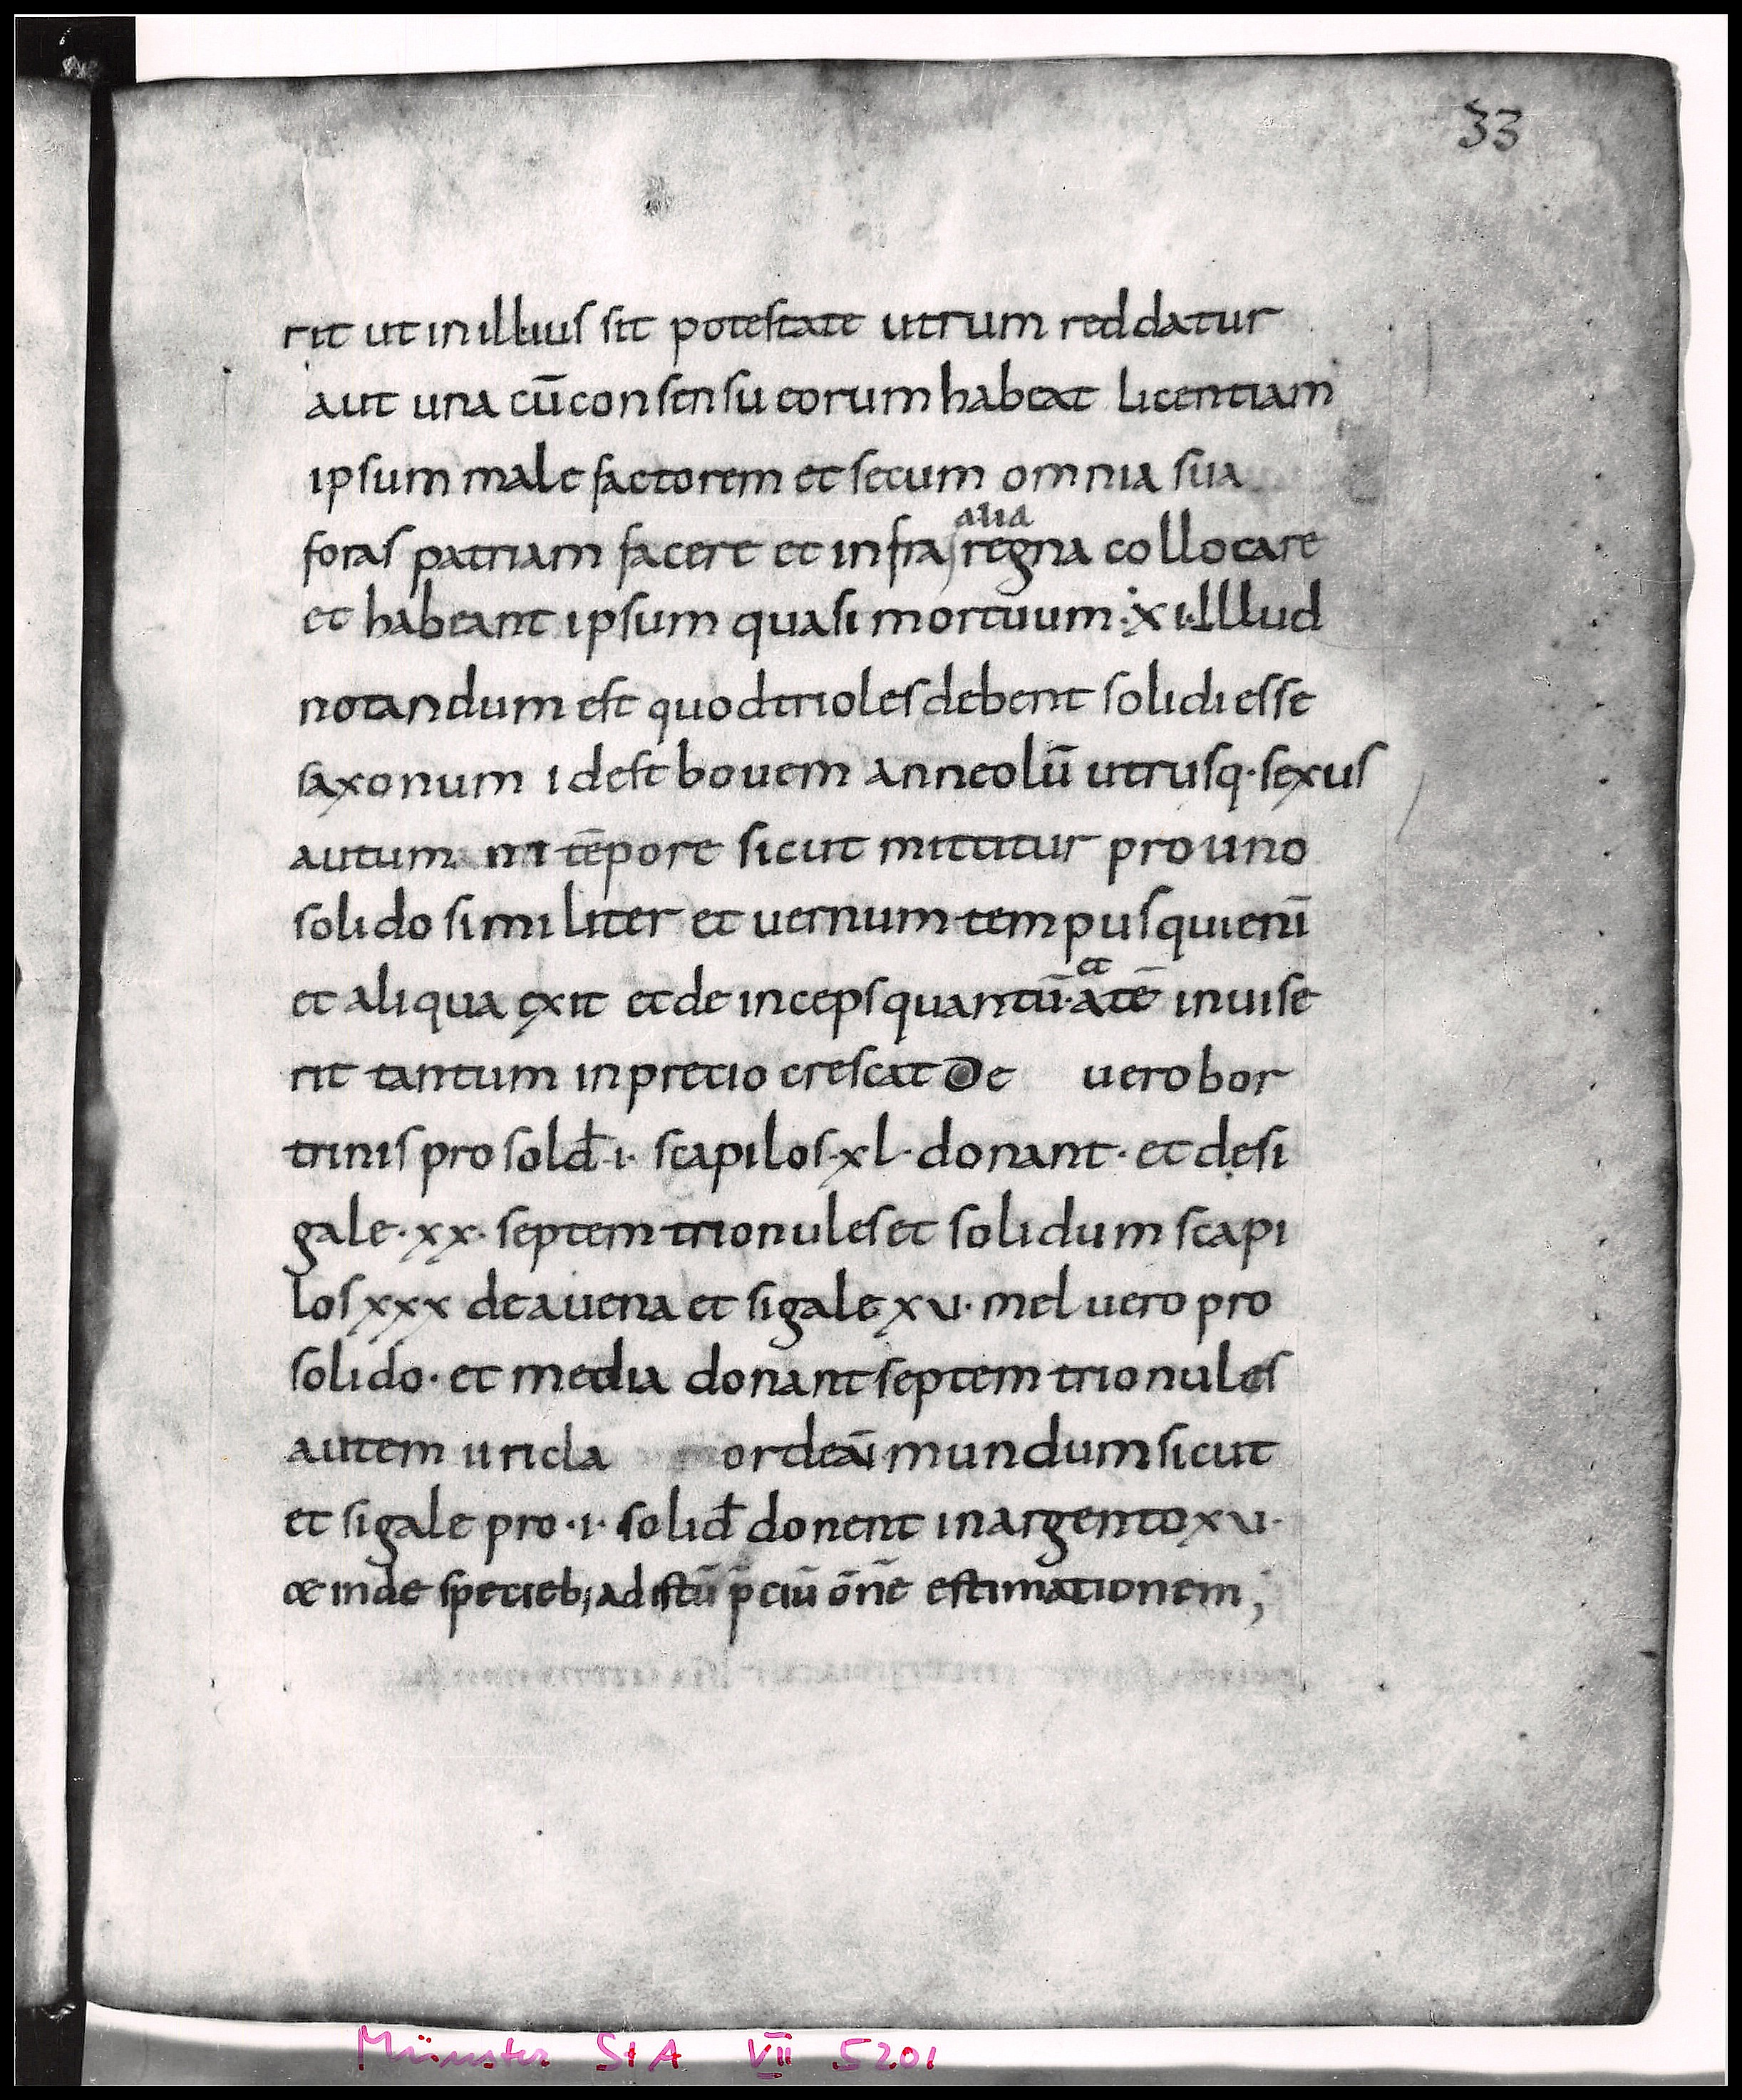 33
rit ut in illius sit potestate utrum reddatur
aut una cū consensu eorum habeat licentiam
ipsum malefactorem et secum omnia sua
alia
foras patriam facere et infra regna collocare
et habeant ipsum quasi mortuum · XI · Illud
notandum est quod trioles debent solidi esse
saxonum id est bouem anneolū utrusq· sexus
autum ni tēpore sicut mittitur pro uno
solido similiter et uernum tempus qui enī
et aliqua exit et deinceps quantū· atē inuise
et
rit tantum in precio crescat De uero bor
trinis pro solđ · i · scapilos · xl · donant · et de si
gale · xx · septemtrionules et solidum scapi
los xxx de auena et sigale xv · mel uero pro
solido · et media donant septemtrionules
autem uricla ordeā mundum sicut
et sigale pro · i · soliđ donent in argento xv ·
inde specieb; ad istū p̄ciū ōnē estimationem ;
Münster StA VII 5201